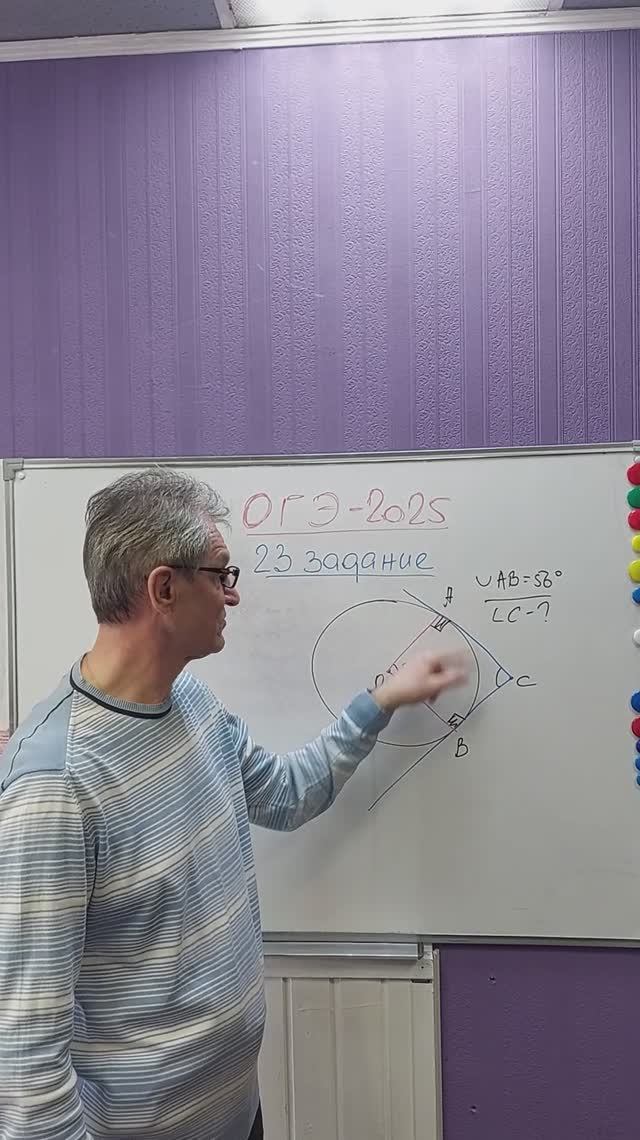 ОГЭ-2025
23 задание
∪AB=56°
∠C-?
A
O
C
B